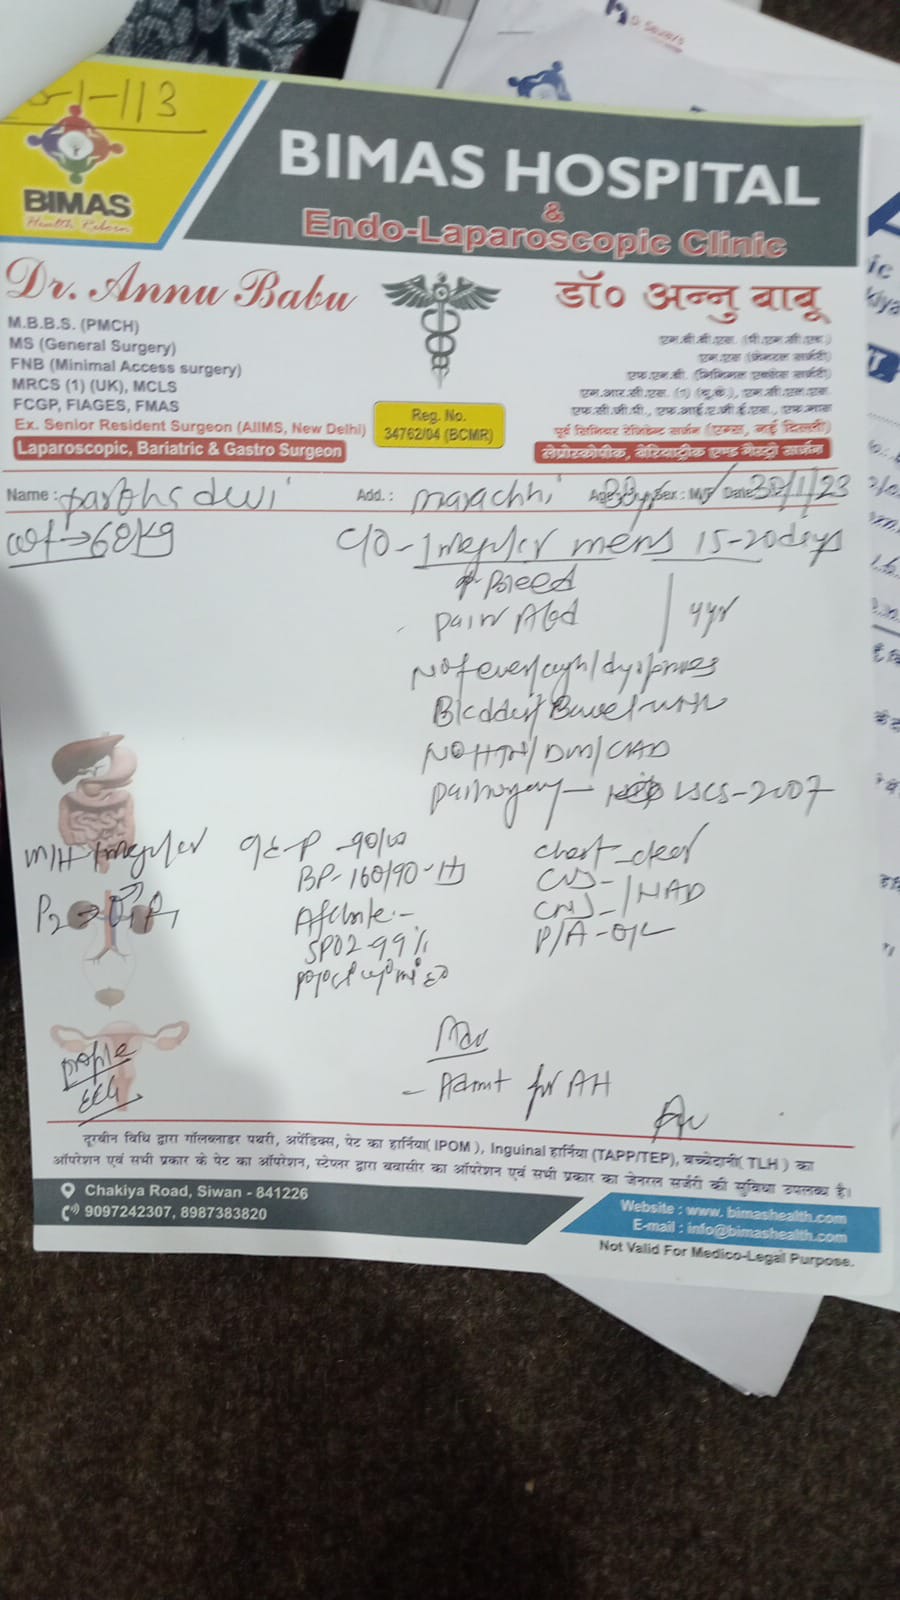 -1-113
BIMAS
Health Reborn
BIMAS HOSPITAL
&
Endo-Laparoscopic Clinic
Dr. Annu Babu
M.B.B.S. (PMCH)
MS (General Surgery)
FNB (Minimal Access surgery)
MRCS (1) (UK), MCLS
FCGP, FIAGES, FMAS
Ex. Senior Resident Surgeon (AIIMS, New Delhi)
Laparoscopic, Bariatric & Gastro Surgeon
Reg. No.
34762/04 (BCMR)
डॉ० अन्नु बाबू
एम.बी.बी.एस. (पी.एम.सी.एच.)
एम.एस (जेनरल सर्जरी)
एफ.एन.बी. (मिनिमल एक्सेस सर्जरी)
एम.आर.सी.एस. (1) (यू.के.), एम.सी.एल.एस.
एफ.सी.जी.पी., एफ.आई.ए.जी.ई.एस., एफ.मास
पूर्व सिनियर रेजिडेन्ट सर्जन (एम्स, नई दिल्ली)
लेप्रोस्कोपीक, बेरियाट्रीक एण्ड गेस्ट्रो सर्जन
Name : devi Add. : Marachhi Age: Sex : M/F Date: 30/1/23
wt → 68 kg
C/O - Irregular mens 15-20 days
Bleed
Pain Abd 4 yr
No fever/cough/dyspnoea
Bladder/Bowel
No HTN/DM/CAD
LSCS-2007
M/H Irregular
P2 →
G&P -90/
BP-160/90-
Afebrile -
SPO2-99%
Chest-clear
CVS-
CNS- /NAD
P/A-
Profile
ECG
Adv
- Admit for AH
दूरबीन विधि द्वारा गॉलब्लाडर पथरी, अपेंडिक्स, पेट का हार्निया( IPOM ), Inguinal हार्निया (TAPP/TEP), बच्चेदानी( TLH ) का
ऑपरेशन एवं सभी प्रकार के पेट का ऑपरेशन, स्टेप्लर द्वारा बवासीर का ऑपरेशन एवं सभी प्रकार का जेनरल सर्जरी की सुविधा उपलब्ध है।
Chakiya Road, Siwan - 841226
9097242307, 8987383820
Website : www. bimashealth.com
E-mail : info@bimashealth.com
Not Valid For Medico-Legal Purpose.